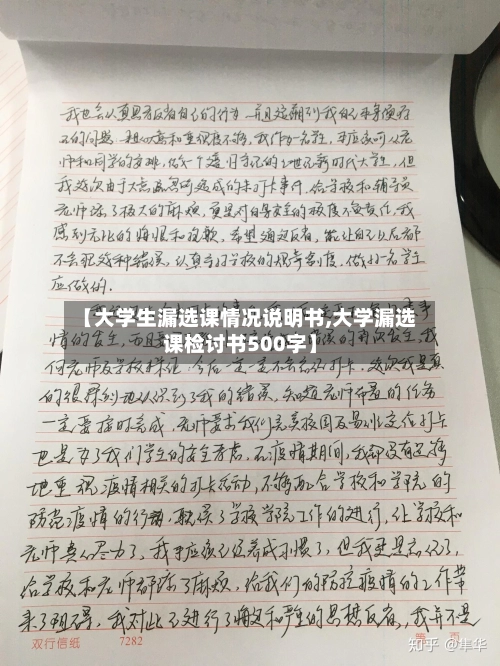 我也会认真思考反省自己的行为，并且意识到我自己本身存在
的问题，担心和重视度不够，我作为一名学生，本应该听从老
师和同学的安排，做一个遵归守纪的新时代大学生，但
我这次由于大意疏忽所造成的未打卡事件，给学校和辅导员
老师添了极大的麻烦，更是对自身安全的极度不负责任，我
感到无比的悔恨和抱歉，希望通过反省，能让自己以后都
不会犯这种错误，认真遵守学校的规章制度，做好一名学生
应做的。
【大学生漏选课情况说明书,大学漏选
课检讨书500字】
情的发生，而且
何老师及学校保证，今后一定不会忘记打卡，这次我是真
的很深刻地认识到了我的错误，知道老师布置的任务
一定要按时完成，老师要求我们完善校园及易班定位打卡
也是为了我们学生的安全考虑，在疫情期间，我却没有足够
地重视疫情相关的打卡活动，不够配合学校和学院的
防范疫情的行动，耽误了学校学院工作的进行，让学校和
老师费心尽力了，我本应该已经养成习惯了，但我还是忘记了，
给学校和老师都添了麻烦，给我们的防控疫情的工作带
来了阻碍，我对此已进行了确定和严重的思想反省，我并不是
双行信纸 7282 第 页
知乎 @隼华